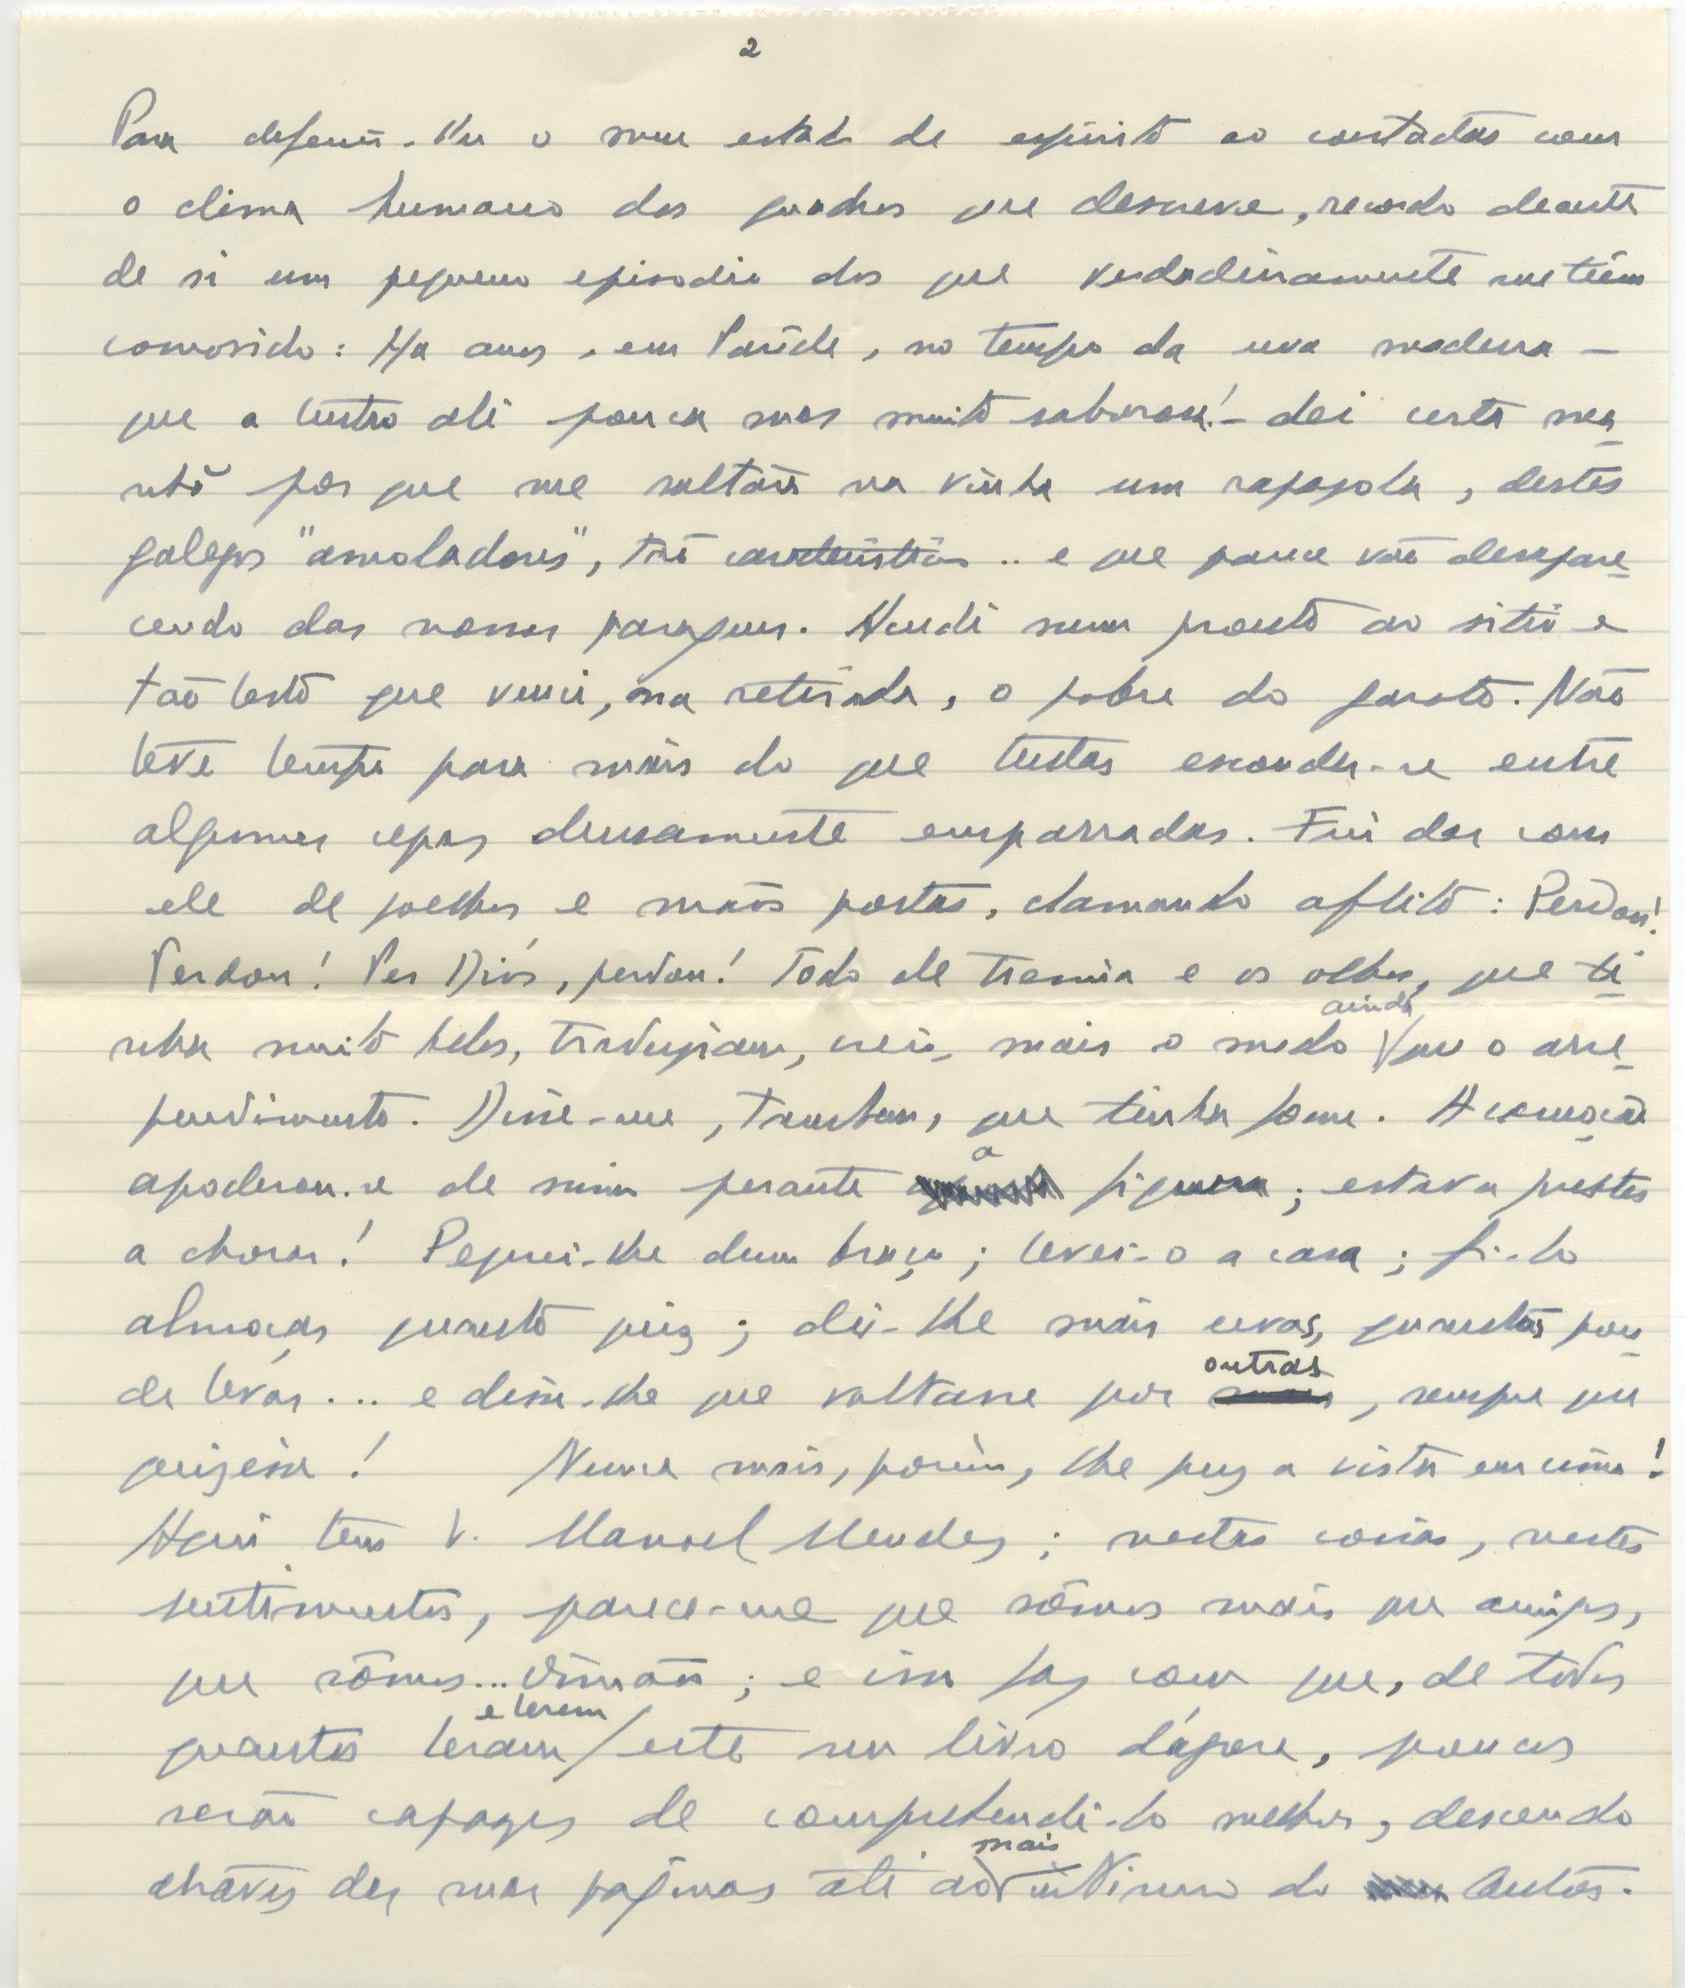 2
Para definir-lhe o meu estado de espirito ao contactar com
o clima humano dos quadros que descreve, recordo deante
de si um pequeno episodio dos que verdadeiramente me teem
comovido: Ha anos, em Parede, no tempo da uva madura -
que a temos ali pouca mas muito saborosa! - dei certa ma-
nhã por que me saltára na vinha um rapazola, destes
galegos "amoladores", tão caracteristicos .. e que parece vão desapare-
cendo das nossas paragens. Acudi num pronto ao sitio e
tão lesto que venci, na retirada, o pobre do garoto. Não
teve tempo para mais do que tentar esconder-se entre
algumas cepas densamente emparradas. Fui dar com
ele de joelhos e mãos postas, clamando aflito: Perdon!
Perdon! Per Diós, perdon! Todo ele tremia e os olhos, que ti-
nha muito belos, traduziam, creio, mais o medo ainda que o arre-
pendimento. Disse-me, tambem, que tinha fome. A comoção
apoderou-se de mim perante a figura; estava prestes
a chorar! Peguei-lhe dum braço; levei-o a casa; fi-lo
almoçar quanto quiz; dei-lhe mais uvas, quantas pou-
de levar... e disse-lhe que voltasse por outras, sempre que
quizesse! Nunca mais, porém, lhe puz a vista em cima!
Aqui tem V. Manoel Mendes; nestas coisas, nestes
sentimentos, parece-me que sômos mais que amigos,
que sômos... irmãos; e isso faz com que, de todos
quantos leram e lerem este seu livro d'agora, poucos
serão capazes de comprehendê-lo melhor, descendo
através das suas paginas até ao mais intimo do Autor.